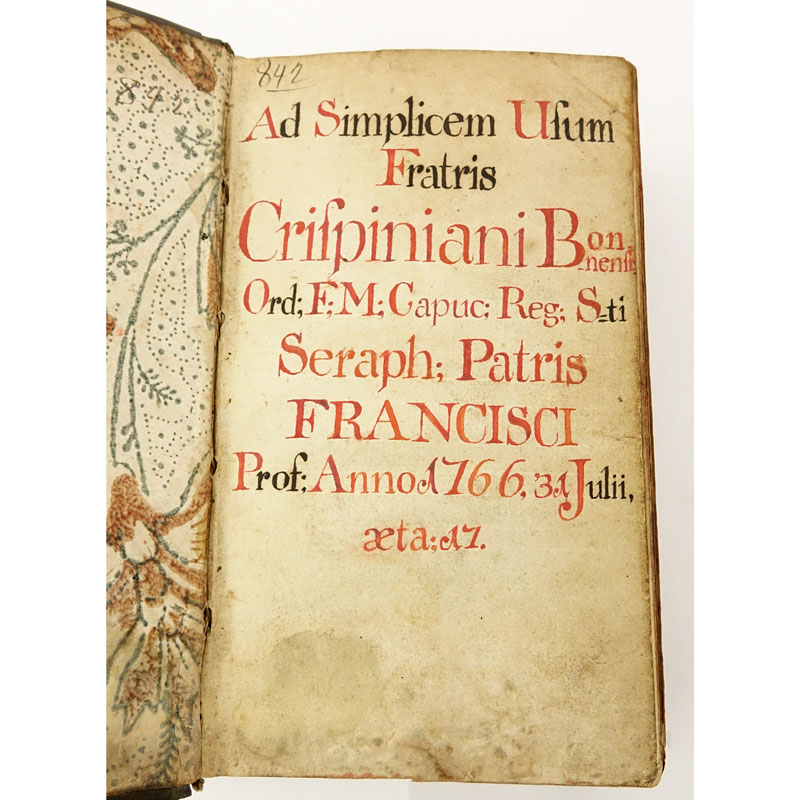 842
842
Ad Simplicem Uſum
Fratris
Criſpiniani Bon-
nenſis
Ord; F; M; Capuc; Reg; S=ti
Seraph; Patris
FRANCISCI
Prof; Anno 1766. 31 Julii,
æta; 17.